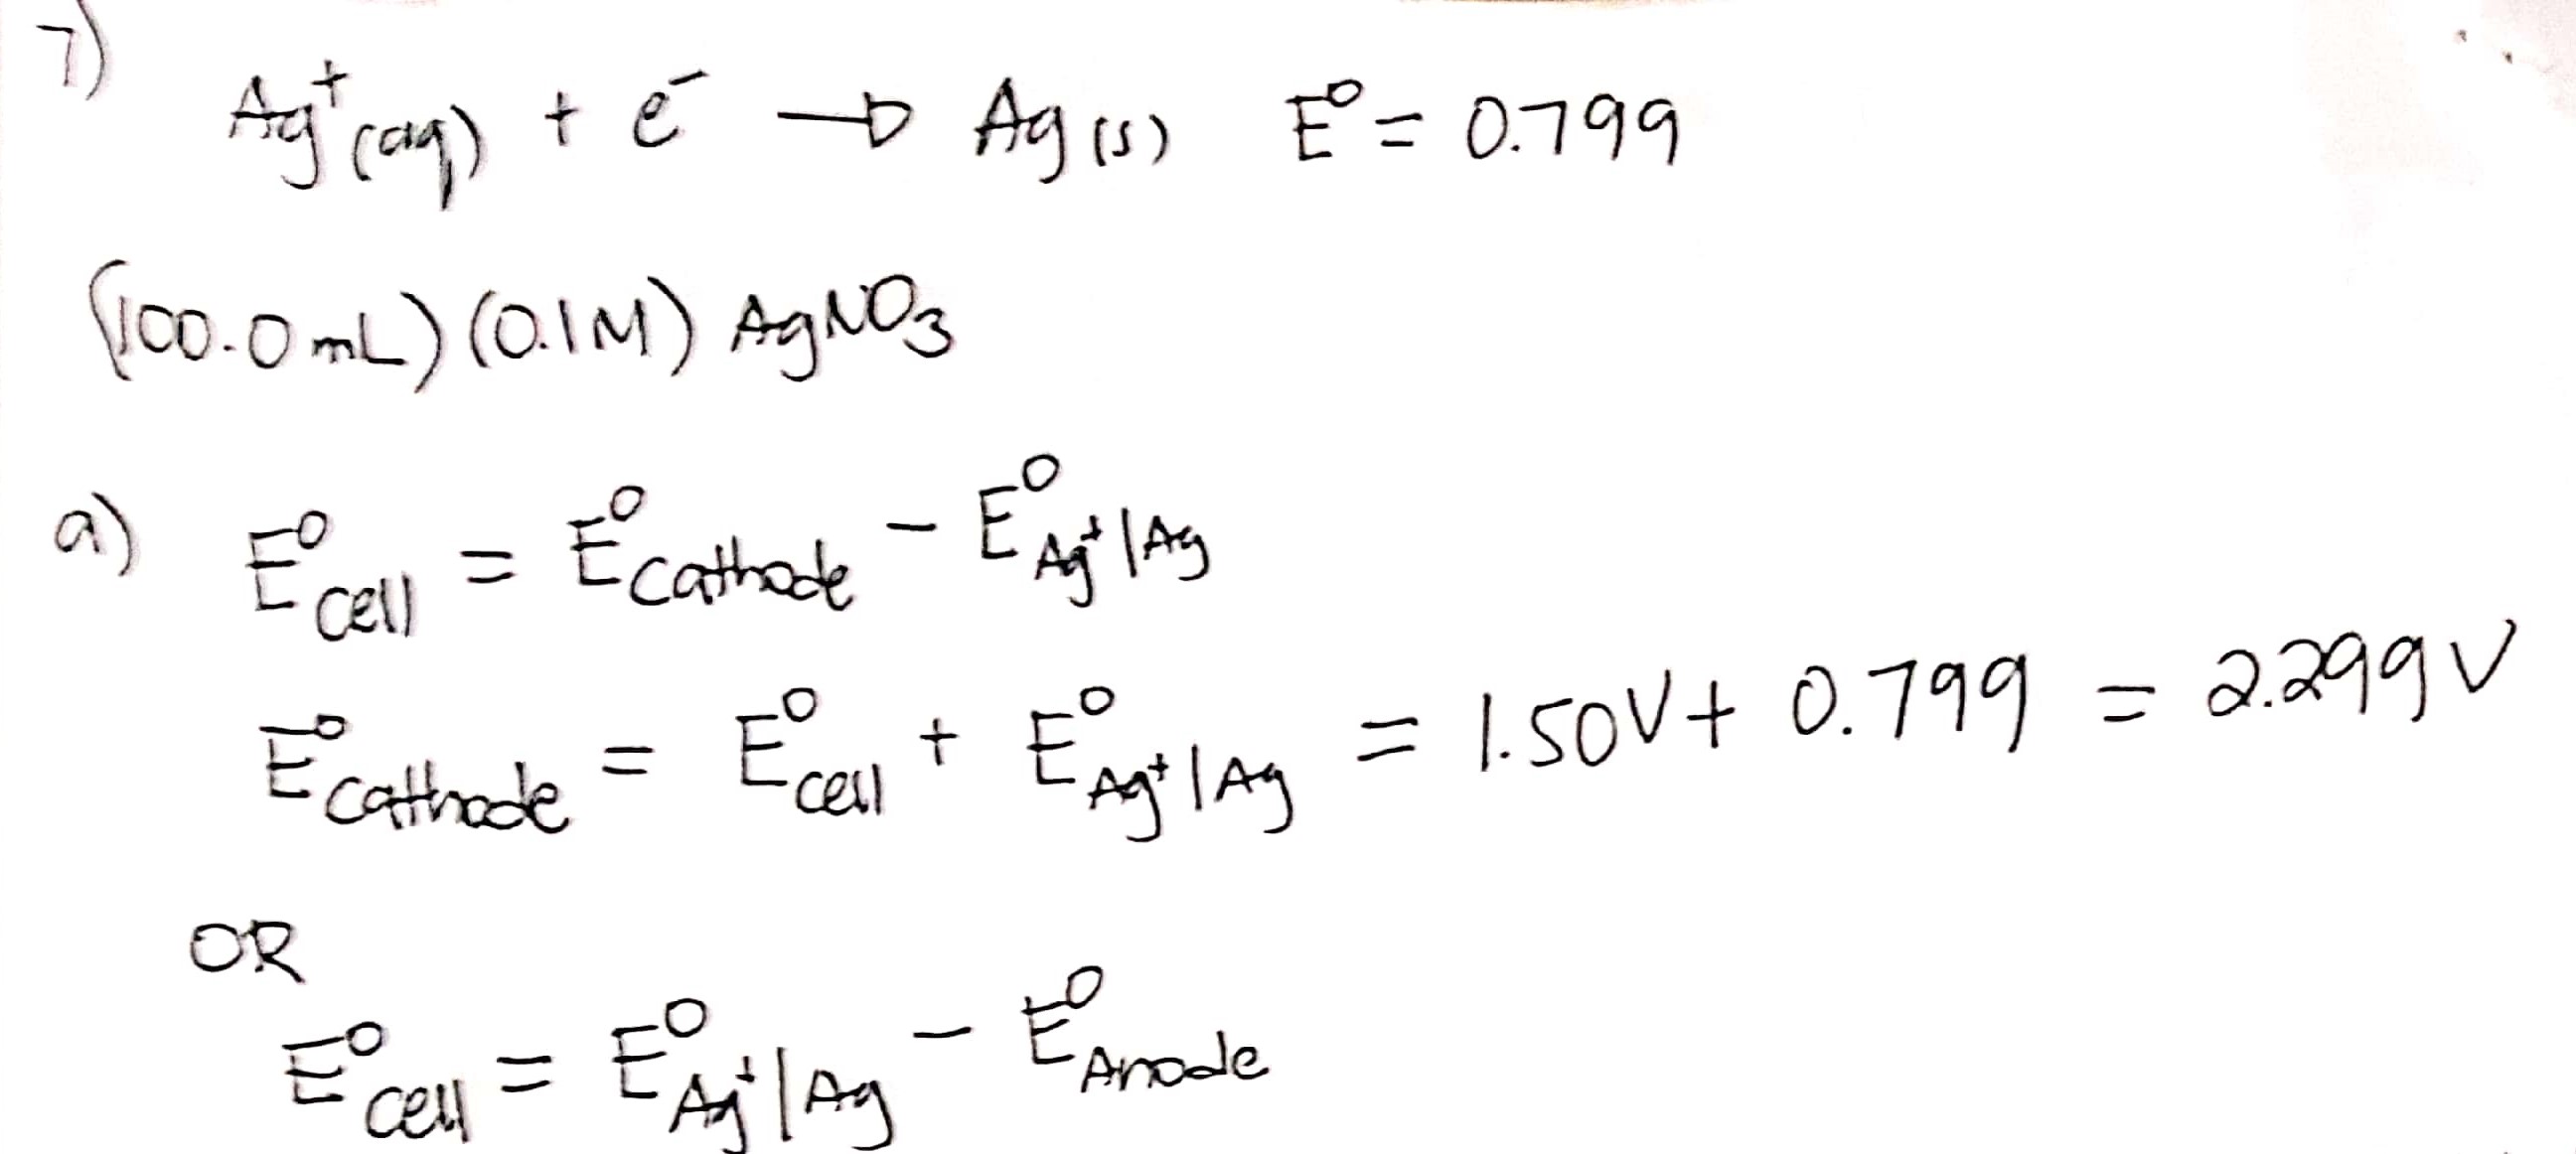 7)
Ag⁺(aq) + e⁻ → Ag(s) E⁰ = 0.799
(100.0 mL) (0.1M) AgNO₃
a) E⁰cell = E⁰cathode − E⁰Ag⁺|Ag
E⁰cathode = E⁰cell + E⁰Ag⁺|Ag = 1.50V + 0.799 = 2.299V
OR
E⁰cell = E⁰Ag⁺|Ag − E⁰Anode